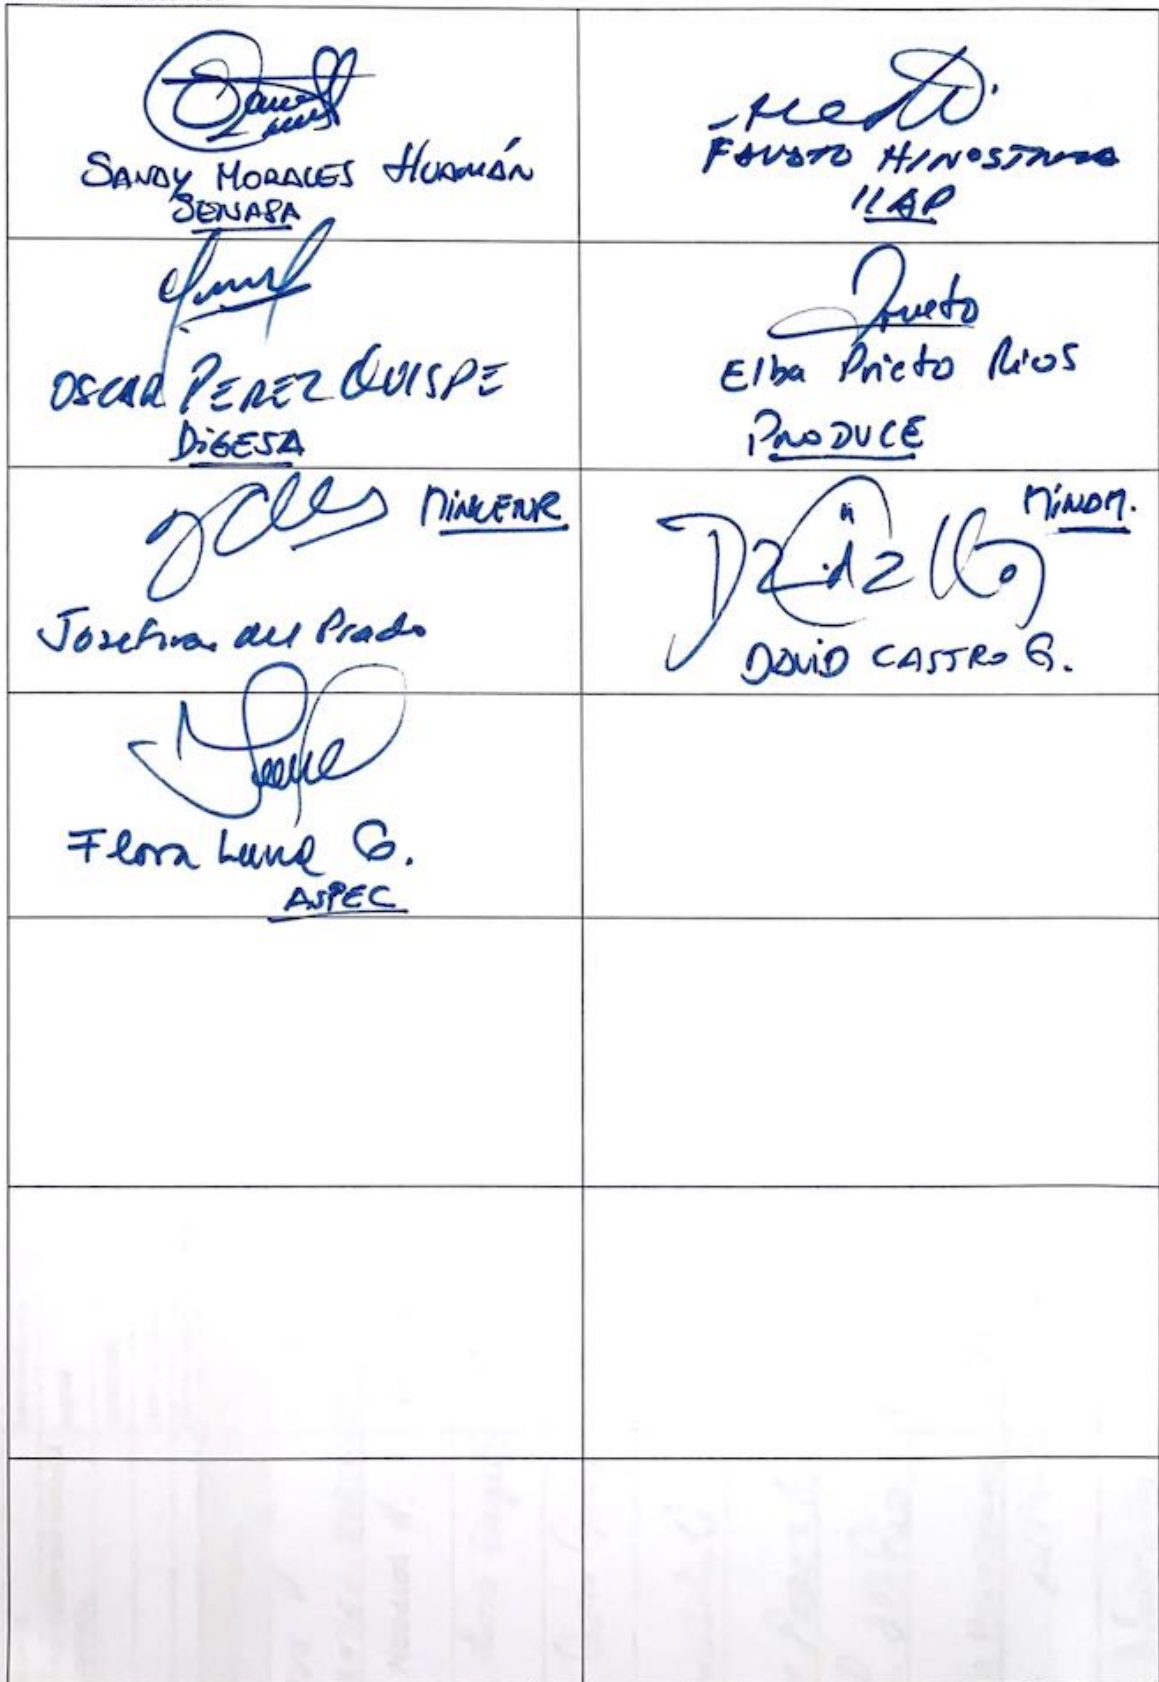 SANDY MORALES HUAMÁN
SENASA
FAUSTO HINOSTROZA
IIAP
OSCAR PEREZ QUISPE
DIGESA
Prieto
Elba Prieto Rios
PRODUCE
MINCETUR
Josefina del Prado
MINAM.
DAVID CASTRO G.
Flora Luna G.
ASPEC